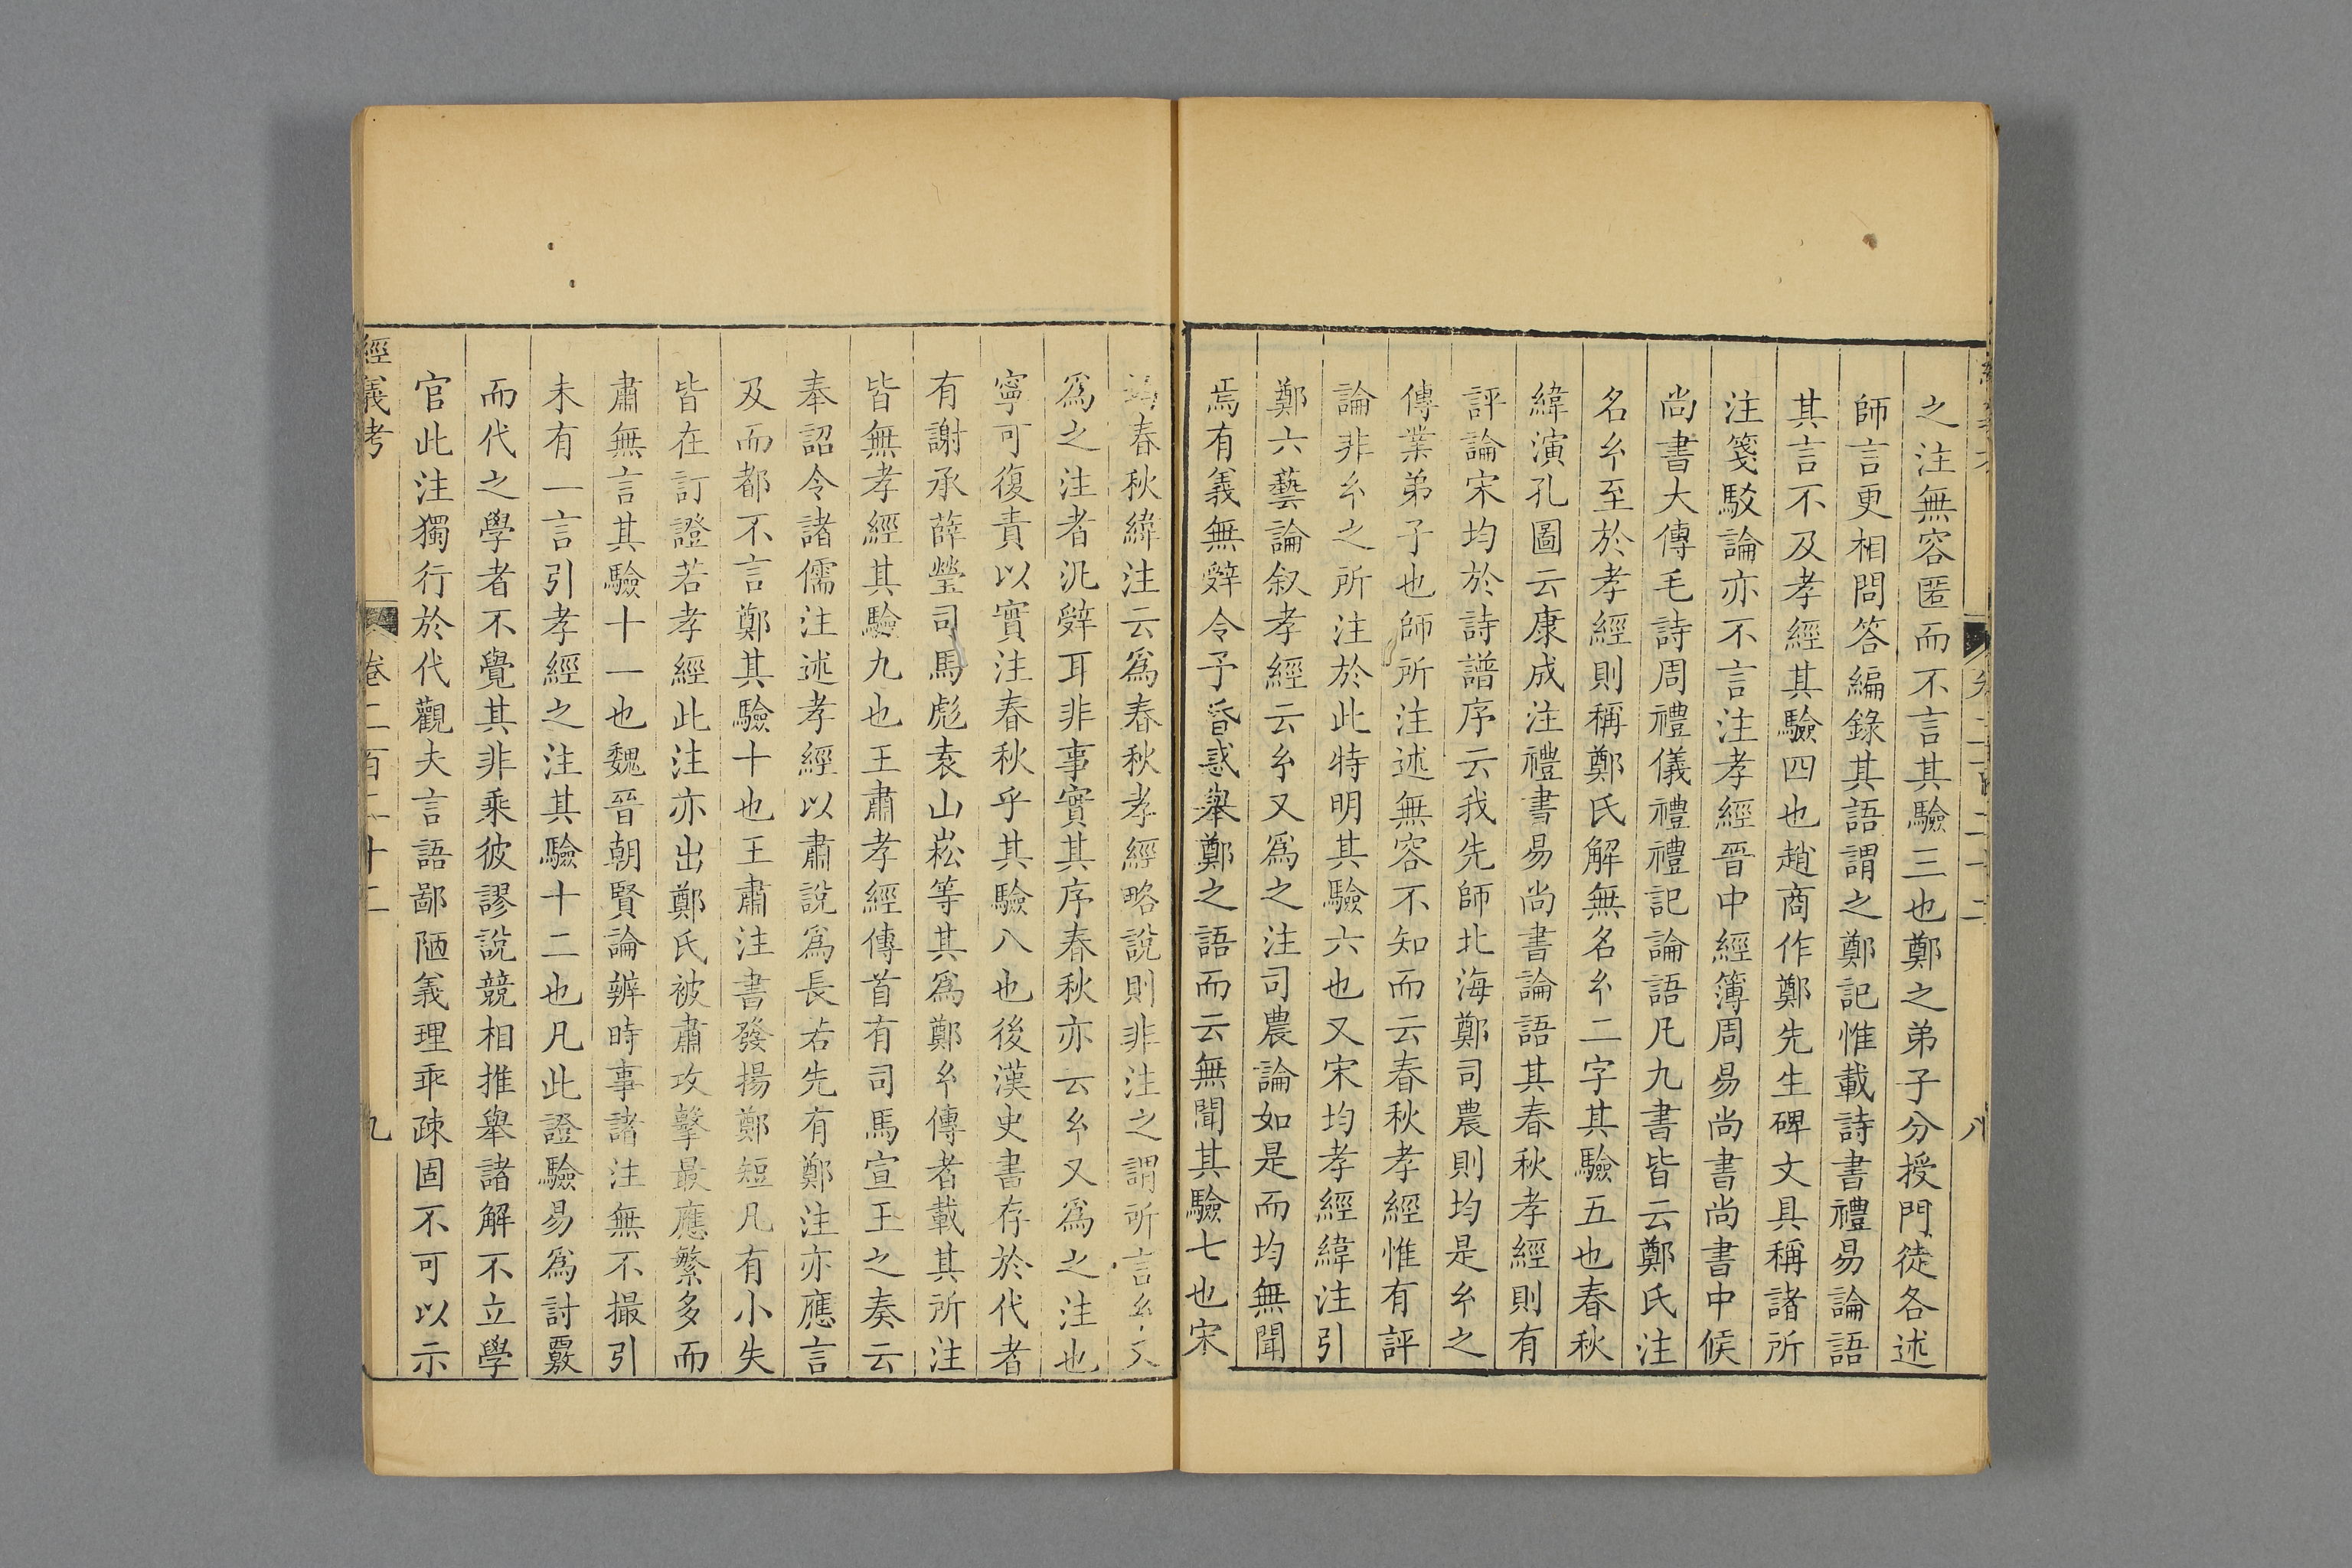 之注無容匿而不言其驗三也鄭之弟子分授門徒各述
師言更相問答編錄其語謂之鄭記惟載詩書禮易論語
其言不及孝經其驗四也趙商作鄭先生碑文具稱諸所
注箋駁論亦不言注孝經晉中經簿周易尚書尚書中候
尚書大傳毛詩周禮儀禮禮記論語凡九書皆云鄭氏注
名𤣥至於孝經則稱鄭氏解無名𤣥二字其驗五也春秋
緯演孔圖云康成注禮書易尚書論語其春秋孝經則有
評論宋均於詩譜序云我先師北海鄭司農則均是𤣥之
傳業弟子也師所注述無容不知而云春秋孝經惟有評
論非𤣥之所注於此特明其驗六也又宋均孝經緯注引
鄭六藝論叙孝經云𤣥又爲之注司農論如是而均無聞
焉有義無辤令予昏惑舉鄭之語而云無聞其驗七也宋
春秋緯注云爲春秋孝經略說則非注之謂所言𤣥又
爲之注者汎辤耳非事實其序春秋亦云𤣥又爲之注也
寧可復責以實注春秋乎其驗八也後漢史書存於代者
有謝承薛瑩司馬彪袁山崧等其爲鄭𤣥傳者載其所注
皆無孝經其驗九也王肅孝經傳首有司馬宣王之奏云
奉詔令諸儒注述孝經以肅說爲長若先有鄭注亦應言
及而都不言鄭其驗十也王肅注書發揚鄭短凡有小失
皆在訂證若孝經此注亦出鄭氏被肅攻擊最應繁多而
肅無言其驗十一也魏晉朝賢論辨時事諸注無不撮引
未有一言引孝經之注其驗十二也凡此證驗易爲討覈
而代之學者不覺其非乘彼謬說競相推舉諸解不立學
官此注獨行於代觀夫言語鄙陋義理乖疎固不可以示
經義考 卷二百二十二 九